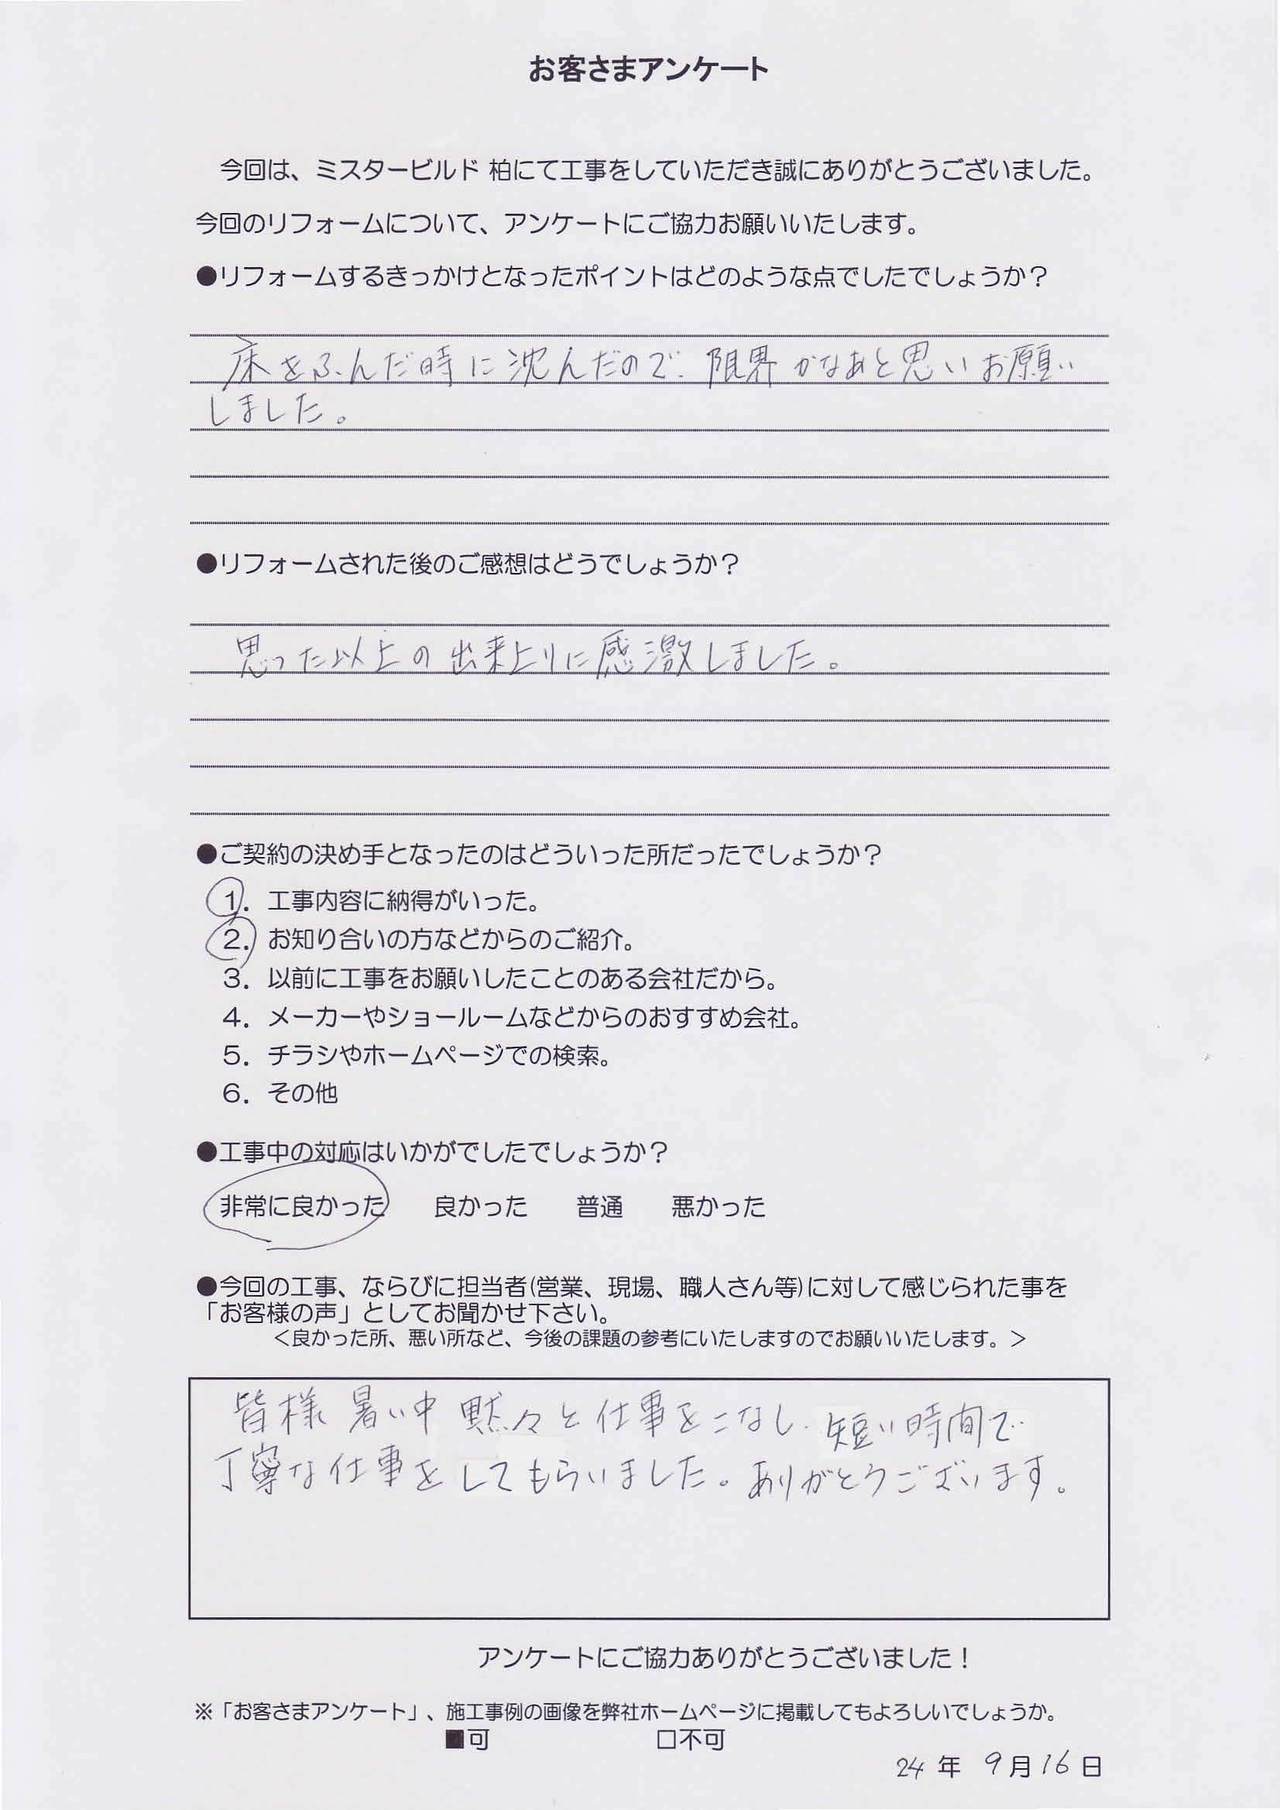 お客さまアンケート
今回は、ミスタービルド 柏にて工事をしていただき誠にありがとうございました。
今回のリフォームについて、アンケートにご協力お願いいたします。
●リフォームするきっかけとなったポイントはどのような点でしたでしょうか？
床をふんだ時に沈んだので、限界かなぁと思いお願い
しました。
●リフォームされた後のご感想はどうでしょうか？
思った以上の出来上りに感激しました。
●ご契約の決め手となったのはどういった所だったでしょうか？
1．工事内容に納得がいった。
2．お知り合いの方などからのご紹介。
3．以前に工事をお願いしたことのある会社だから。
4．メーカーやショールームなどからのおすすめ会社。
5．チラシやホームページでの検索。
6．その他
●工事中の対応はいかがでしたでしょうか？
非常に良かった　良かった　普通　悪かった
●今回の工事、ならびに担当者(営業、現場、職人さん等)に対して感じられた事を
「お客様の声」としてお聞かせ下さい。
＜良かった所、悪い所など、今後の課題の参考にいたしますのでお願いいたします。＞
皆様 暑い中 黙々と仕事をこなし、短い時間で
丁寧な仕事をしてもらいました。ありがとうございます。
アンケートにご協力ありがとうございました！
※「お客さまアンケート」、施工事例の画像を弊社ホームページに掲載してもよろしいでしょうか。
■可　□不可
24年 9月16日